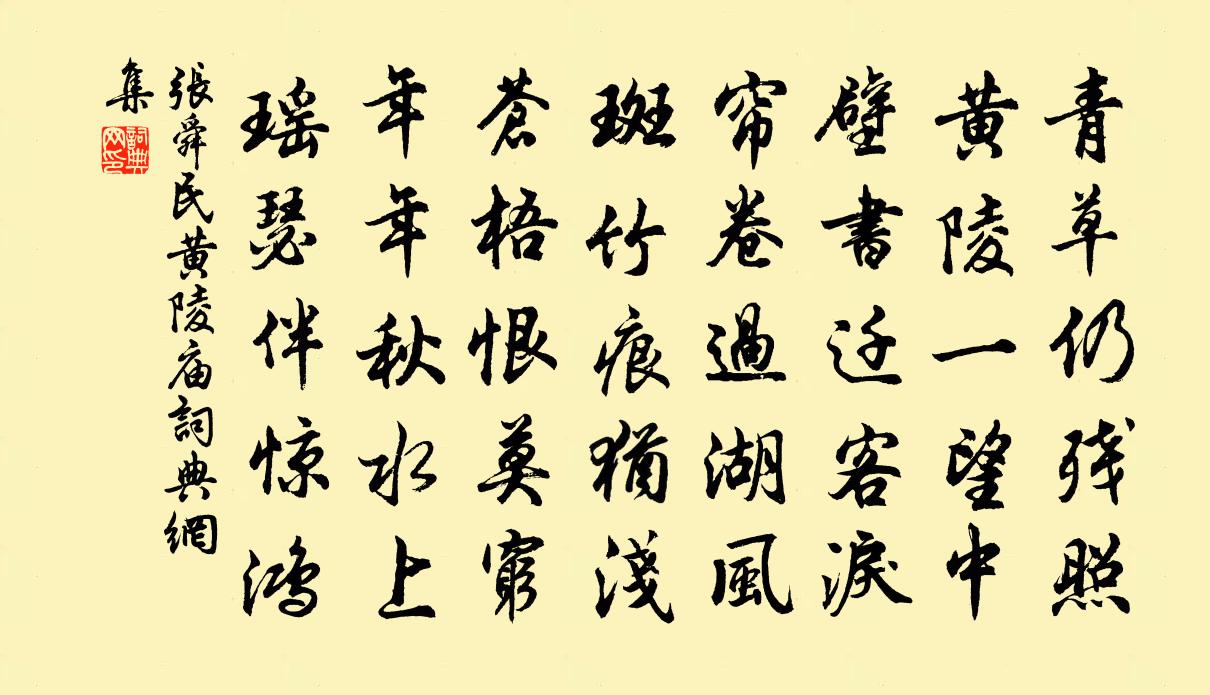 青草仍残照
黄陵一望中
壁書迁客淚
帘卷過湖風
斑竹痕猶淺
蒼梧恨莫窮
年年秋水上
瑶瑟伴惊鸿
張舜民黄陵庙詞典網
集
詞典
网印